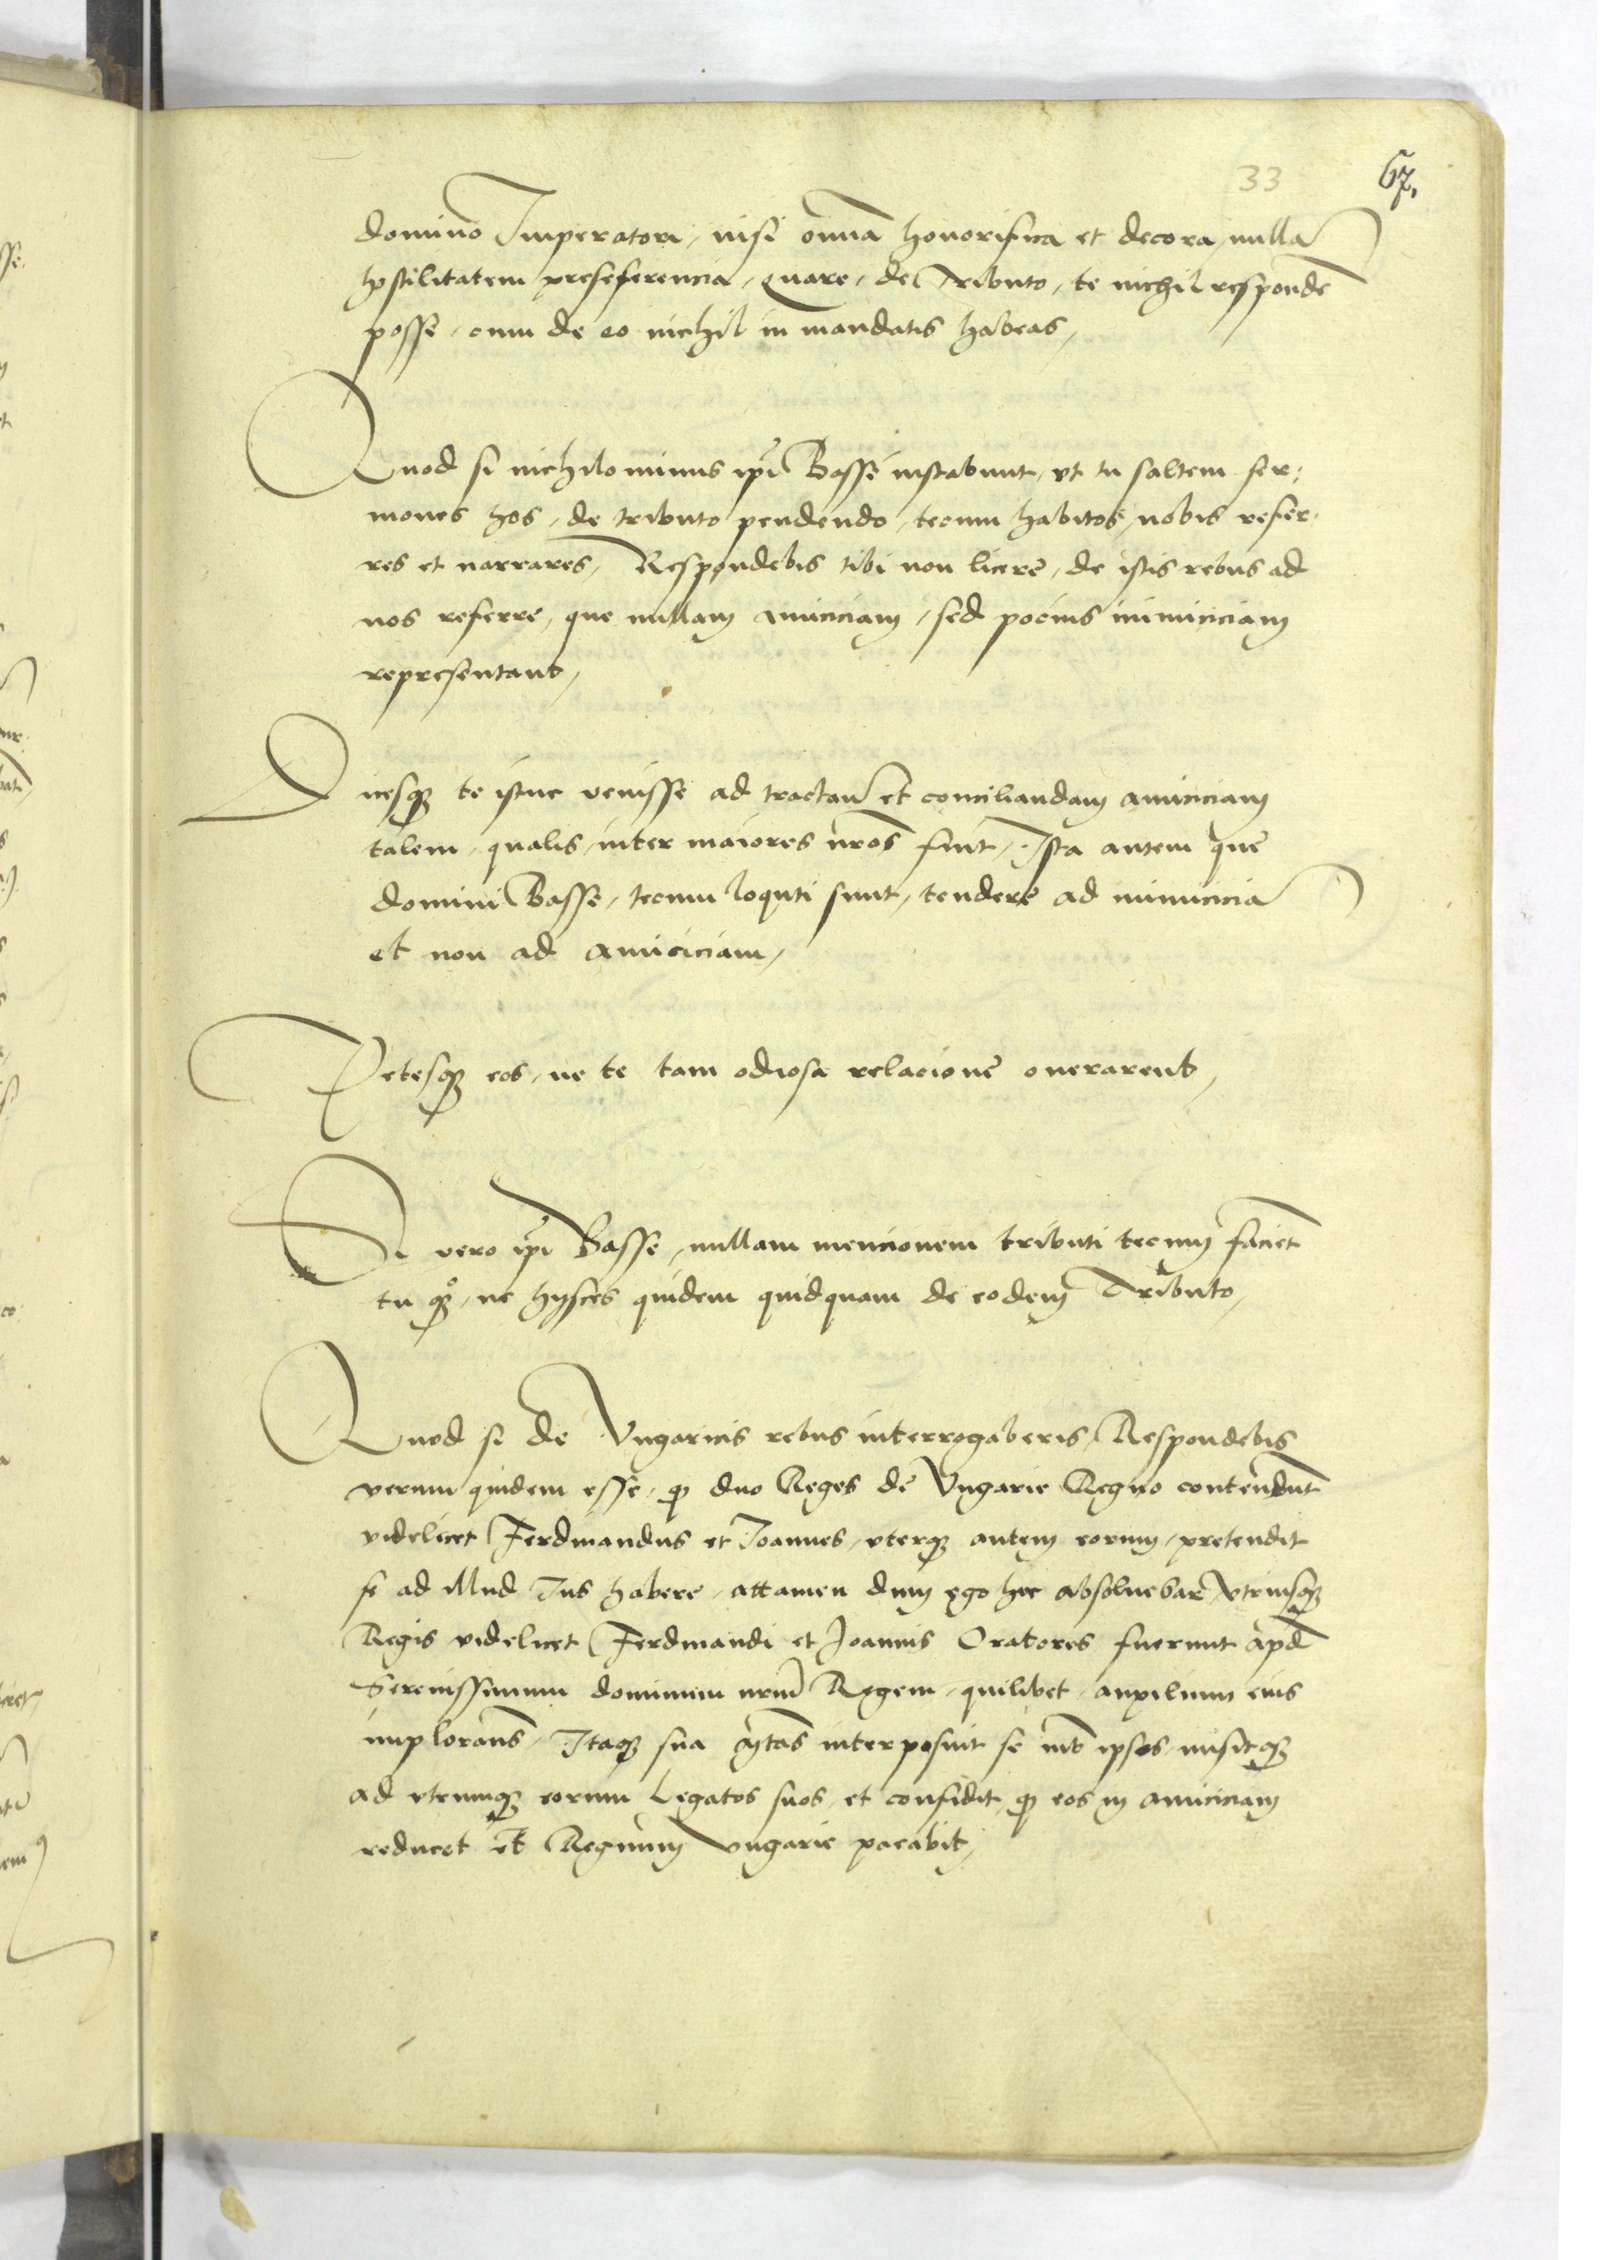 33 67,
domino Imperatori, nisi omnia honorifica et decora, nullã
hostilitatem preseferencia, quare, de Tributo, te nichil respondẽ
posse, cum de eo nichil in mandatis habeas,
Quod si nichilominus ipi Basse instabunt, vt tu saltem ser:
mones hos, de tributo pendendo, tecum habitos, nobis refer:
res et narrares, Respondebis tibi non licere, de istis rebus ad
nos referre, que nullam amiciciam, sed pocius inimiciciam
representant,
Dicesq; te istuc venisse ad tractan̄ et conciliandam amiciciam
talem, qualis, inter maiores nros fuit, Ista autem que
domini Basse, tecum loquti sunt, tendere ad inimiciciã
et non ad amiciciam,
Petesq; eos, ne te tam odiosa relacione onerarent,
Si vero ipi Basse, nullam mencionem tributi tecum faciẽt
tu qo, ne hysces quidem quidquam de eodem Tributo,
Quod si de Vngaricis rebus interrogaberis, Respondebis
verum quidem esse, q duo Reges de Vngarie Regno contendũt
videlicet Ferdinandus et Joannes, vterq; autem eorum, pretendit
se ad illud Jus habere, attamen dum ego hec absoluebar vtriusq;
Regis videlicet Ferdinandi et Joannis Oratores fuerunt apd
Serenissimum dominum nrum Regem, quilibet, auxilium eius
implorans, Itaq; sua Mtas interposuit se int ipsos, misitq;
ad vtrumq; eorum Legatos suos, et confidit, q eos in amiciciam
reducet et Regnum Vngarie pacabit,